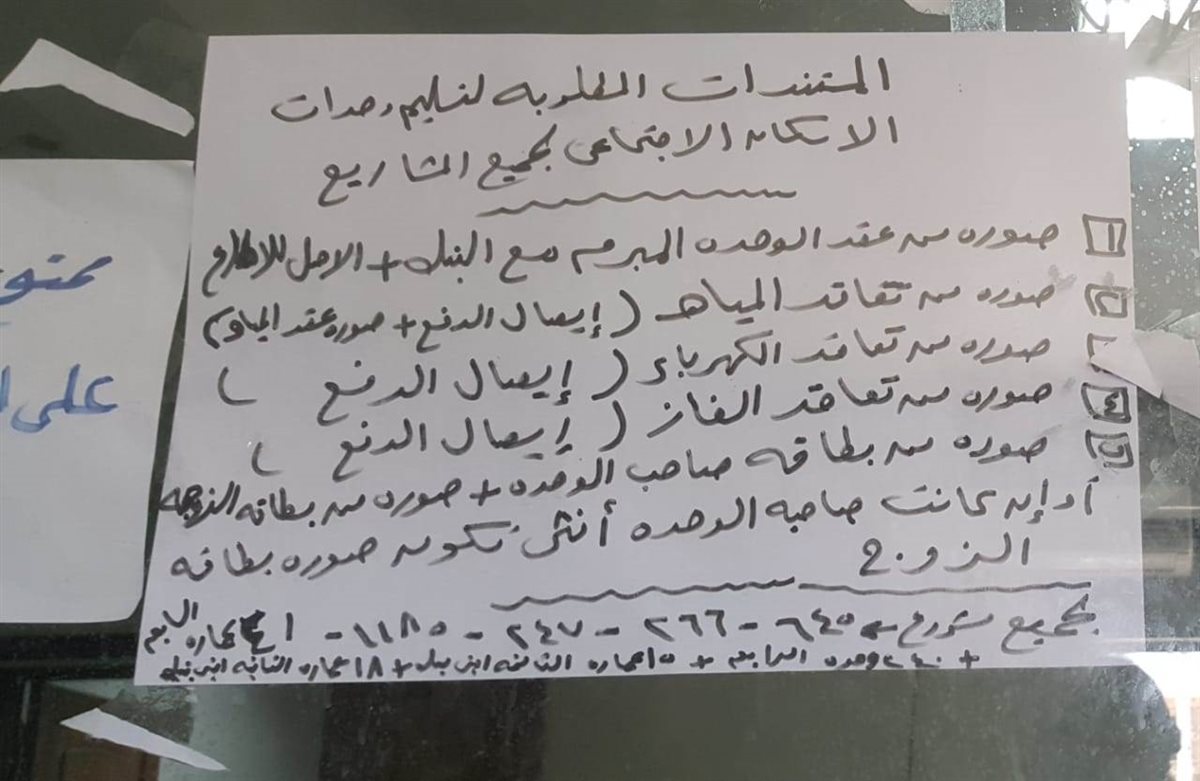 المستندات المطلوبه لتسليم وحدات
الاسكان الاجتماعى لجميع المشاريع
١ صوره من عقد الوحده المبرم مع البنك + الاصل للاطلاع
٢ صوره من تعاقد المياه (إيصال الدفع + صوره عقد المياه)
صوره من تعاقد الكهرباء (إيصال الدفع )
٤ صوره من تعاقد الغاز (إيصال الدفع )
٥ صوره من بطاقه صاحب الوحده + صوره من بطاقه الزوجه
أو إن كانت صاحبه الوحده أنثى تكون صوره بطاقه
الزوج
لجميع مشروع ٦٤٥ - ٢٦٦ - ٢٤٧ - ١١٨٥ - ٤١ عماره الرابعه
+ ٢٤٠ وحده الرابعه + ١٥ عماره الثالثه ابنى بيتك + ١٨ عماره الثانيه ابنى بيتك
ممنوع
على